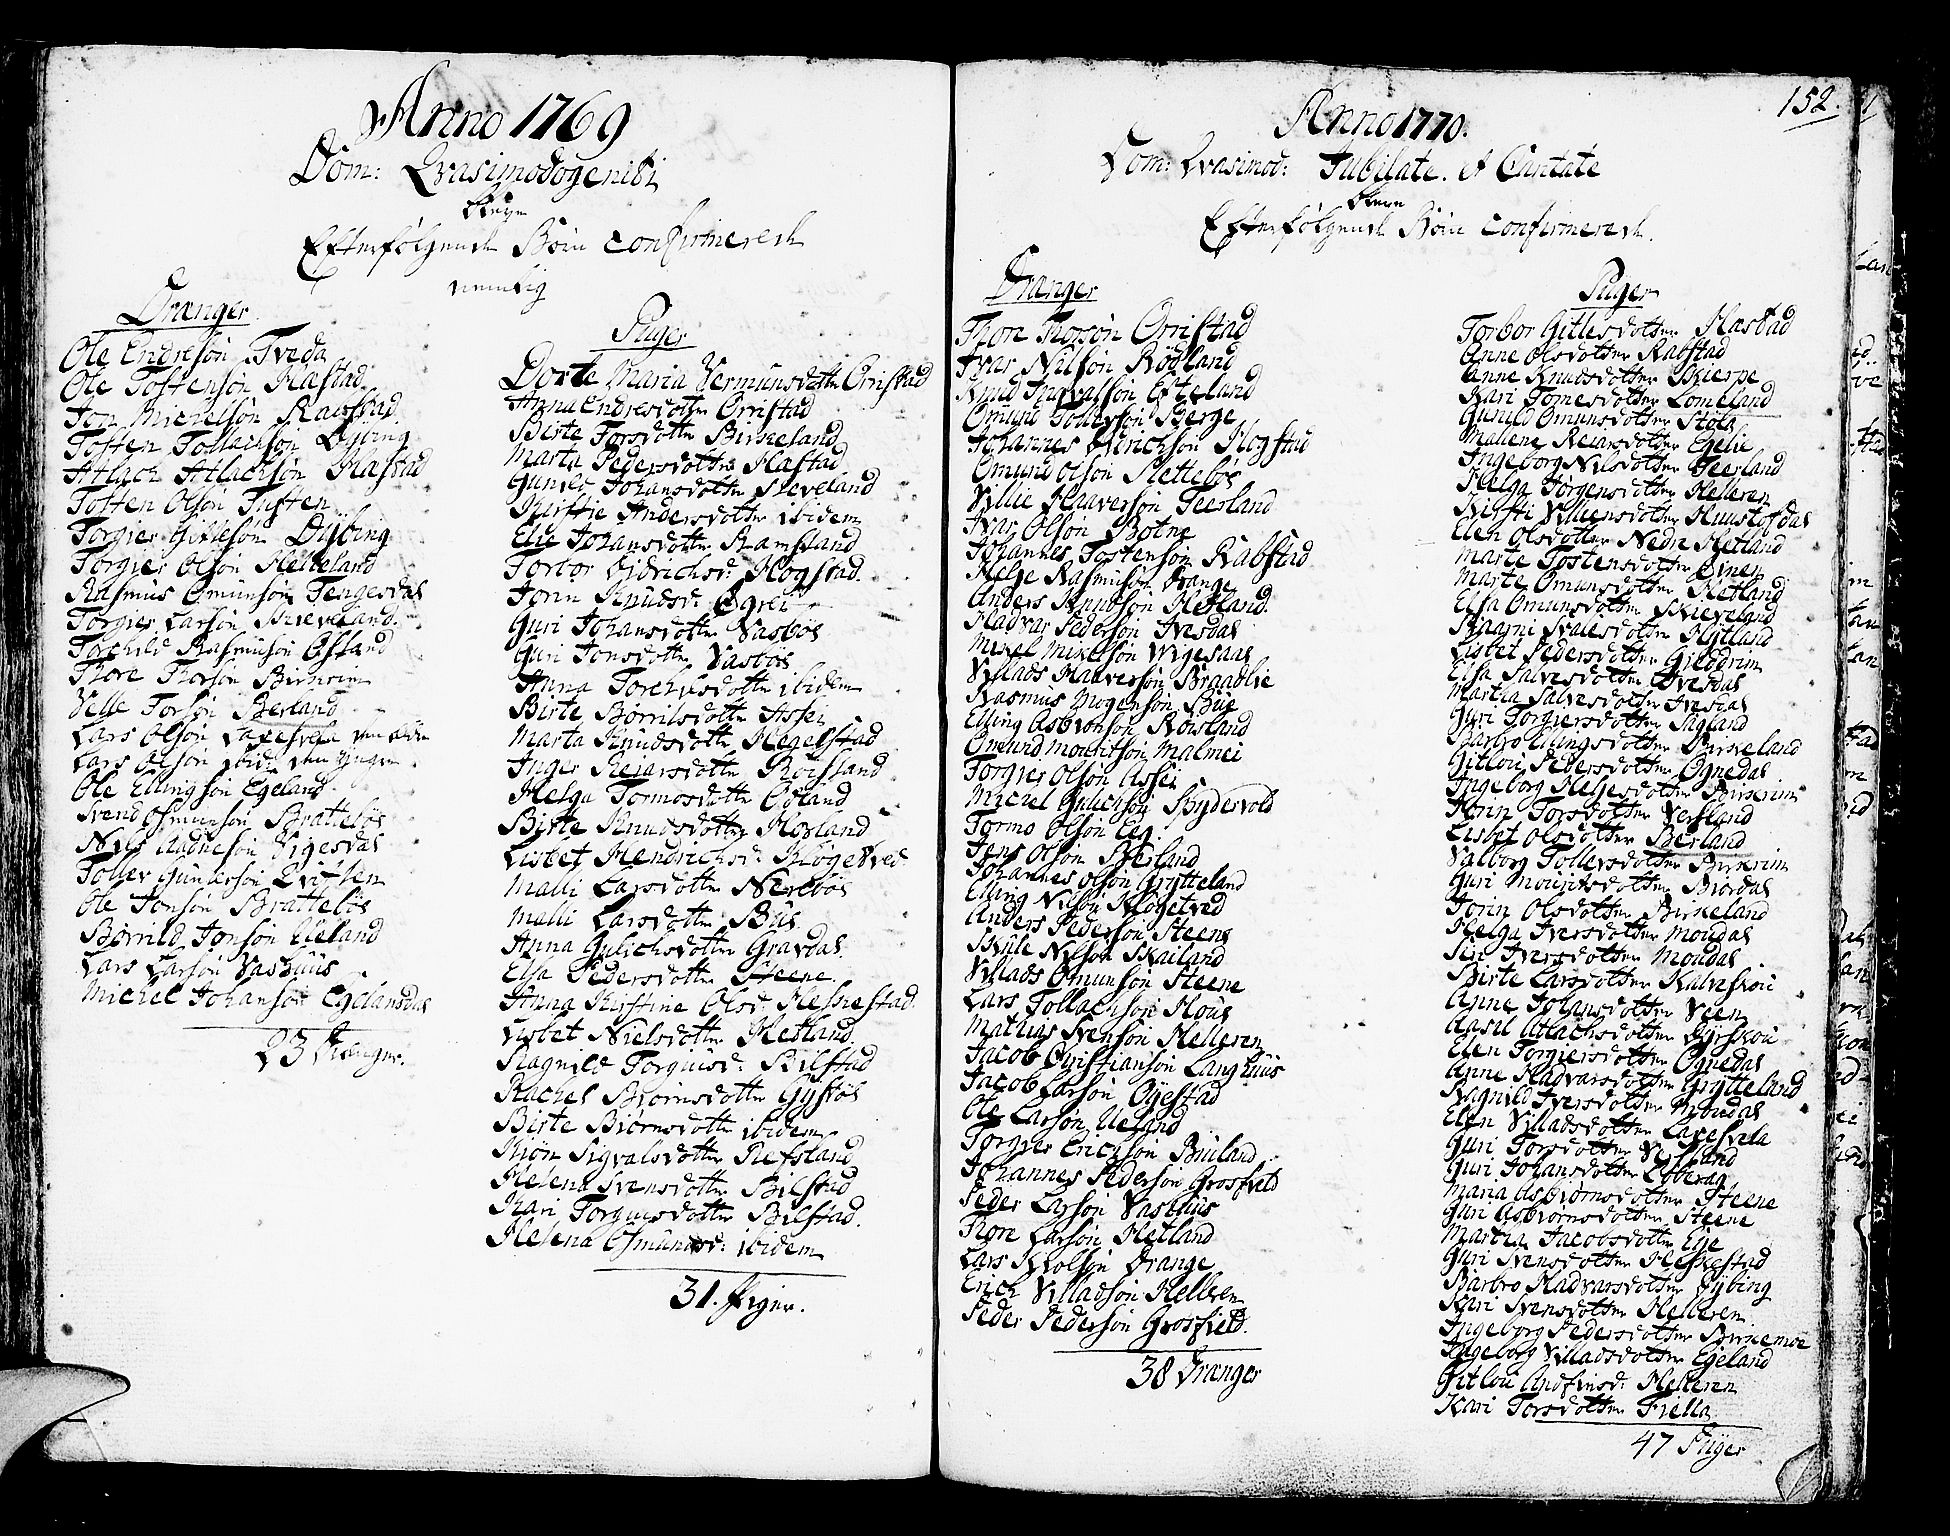 Anno 1769
Dom: Qvasimodogeniti
bleve
Efterfølgende Børn confirmerede
nemlig
Drænger
Ole Endresøn Tveda
Ole Tostensøn Hæstad
Jon Michelsøn Ramstad
Tosten Tollachsøn Dybing
Atlach Atlachsøn Hæstad
Tosten Olsøn Tuften
Torgier Gitlesøn Dÿbing
Torgier Olsøn Helleland
Rasmus Omunsøn Tengesdal
Torgier Larsøn Skieveland
Torchild Rasmusøn Østand
Thore Thorsøn Birkrim
Velle Torsøn Berland
Lars Olsøn Laxesvela den ældre
Lars Olsøn ibid: den yngre
Ole Ellingsøn Egeland
Svend Osmunsøn Bratteløs
Nils Audnesøn Vigesdal
Tollev Gundersøn Qviflen
Ole Jonsøn Bratteløs
Børrild Jonsøn Ueland
Lars Larsøn Vashuus
Michel Johansøn Egelansdal
23 Drænger.
Piger
Dorte Maria Vermunsdotter Orrestad
Anna Endresdotter Orrestad
Birte Torsdotter Birkeland
Marta Pedersdotter Hæstad
Gunild Johansdotter Skieveland
Kirstie Andersdotter ibidem
Elie Johansdotter Ramsland
Torbor Didrichsd: Hogstad
Jorin Knudsd: Ogrei
Guri Johansdotter Vasbøe
Guri Jonsdotter Vasbøe
Anna Torchelsdotter ibidem
Birte Børrilsdotter Assei
Marta Knudsdotter Hegelstad
Inger Reiarsdotter Røisland
Helga Tormosdotter Øvland
Birte Knudsdotter Hovland
Lisbet Hendrichsd: Kløgetved
Malli Larsdotter Nerebøe
Malli Larsdotter Bue
Anna Gulichsdotter Gravdal
Elsa Pedersdotter Steene
Anna Kirstine Olsd: Heskestad
Lisbet Nielsdotter Hetland
Ragnild Torgiusd: Bilstad
Rachel Biørnsdotter Gystøl
Birte Biørnsdotter ibidem
Kiøn Sigvalsdotter Refsland
Helena Svensdotter Bilstad
Kari Torgiersdotter Bilstad
Helena Osmundsd: ibidem
31. Piger.
152.
Anno 1770.
Dom: Qvasimod: Jubilate. et Cantate
bleve
Efterfølgende Børn confirmerede.
Drænger
Thore Thorsøn Orrestad
Ivar Nilsøn Rødland
Knud Ingvalsøn Efteland
Omund Tollersøn Berge
Johannes Didrichsøn Hogstad
Omund Olsøn Slettebøe
Villie Haaversøn Seesland
Ivar Olsøn Botne
Johannes Tostensøn Rabstad
Helje Rasmusøn Drange
Anders Knudsøn Hetland
Hadvar Pedersøn Ivesdal
Mikel Mikelsøn Wigesaae
Villads Haaversøn Braadlie
Rasmus Mogensøn Bue
Elling Asbiønsøn Røisland
Omund Mouritsøn Malmei
Torgier Olsøn Assei
Michel Gulichsøn Spydevold
Tormo Olsøn Eeg
Jens Olsøn Berland
Johannes Olsøn Grytteland
Elling Nilsøn Kløgetved
Anders Pedersøn Steene
Skule Nilsøn Skailand
Villads Omunsøn Steene
Lars Tollachsøn Houe
Mathias Svensøn Helleren
Jacob Christiansøn Langhuus
Jacob Larsøn Øyestad
Ole Larsøn Ueland
Torgier Erichsøn Builand
Johannes Pedersøn Grosfield
Peder Larsøn Vashuus
Thore Larsøn Hetland
Lars Kolsøn Drange
Erich Villadsøn Helleren
Peder Pedersøn Grosfield
38 Drænger
Piiger
Torbor Gitlesdotter Hæstad
Anne Olsdotter Rabstad
Anne Knudsdotter Skierpe
Kari Tomesdotter Lomeland
Gunild Omunsdotter Støle
Malene Reiarsdotter Egelie
Ingeborg Nilsdotter Seesland
Helga Jørgensdotter Helleren
Kirsti Villiensdotter Hunstofdal
Elen Olsdotter Nedre Hetland
Marte Tostensdotter Ognen
Marte Omunsdotter Hetland
Elsa Omunsdotter Skieveland
Raagni Svalesdotter Høitland
Lisbet Pedersdotter Gildgrim
Elsa Salvesdotter Ivesdal
Martha Salvesdotter Ivesdal
Guri Torgiersdotter Sagland
Barbro Ellingsdotter Birkeland
Gitlou Pedersdotter Ognedal
Ingeborg Heljesdotter Birkrim
Jorin Torsdotter Versland
Lisbet Olsdotter Berland
Valborg Tollevsdotter Birkrim
Guri Mouritsdotter Biordal
Jorin Olsdotter Birkeland
Helga Iversdotter Moudal
Siri Iversdotter Moudal
Birte Larsdotter Kalveskou
Anne Johansdotter Veen
Aasil Atlachsdotter Byrskou
Elen Torgiersdotter Ognedal
Anne Hadvarsdotter Grytteland
Ragnild Iversdotter Moudal
Elen Villadsdotter Laxesvela
Guri Torsdotter Versland
Guri Johansdotter Egberag
Maria Asbiørnsdotter Steene
Guri Asbiørnsdotter Steene
Martha Jacobsdotter Eje
Guri Svensdotter Heskestad
Barbro Hadvarsdotter Dybing
Kari Svensdotter Helleren
Ingeborg Pedersdotter Birkemoe
Ingeborg Villadsdotter Egeland
Gitlou Andfinsd: Helleren
Kari Torsdotter Fiella
47 Piiger